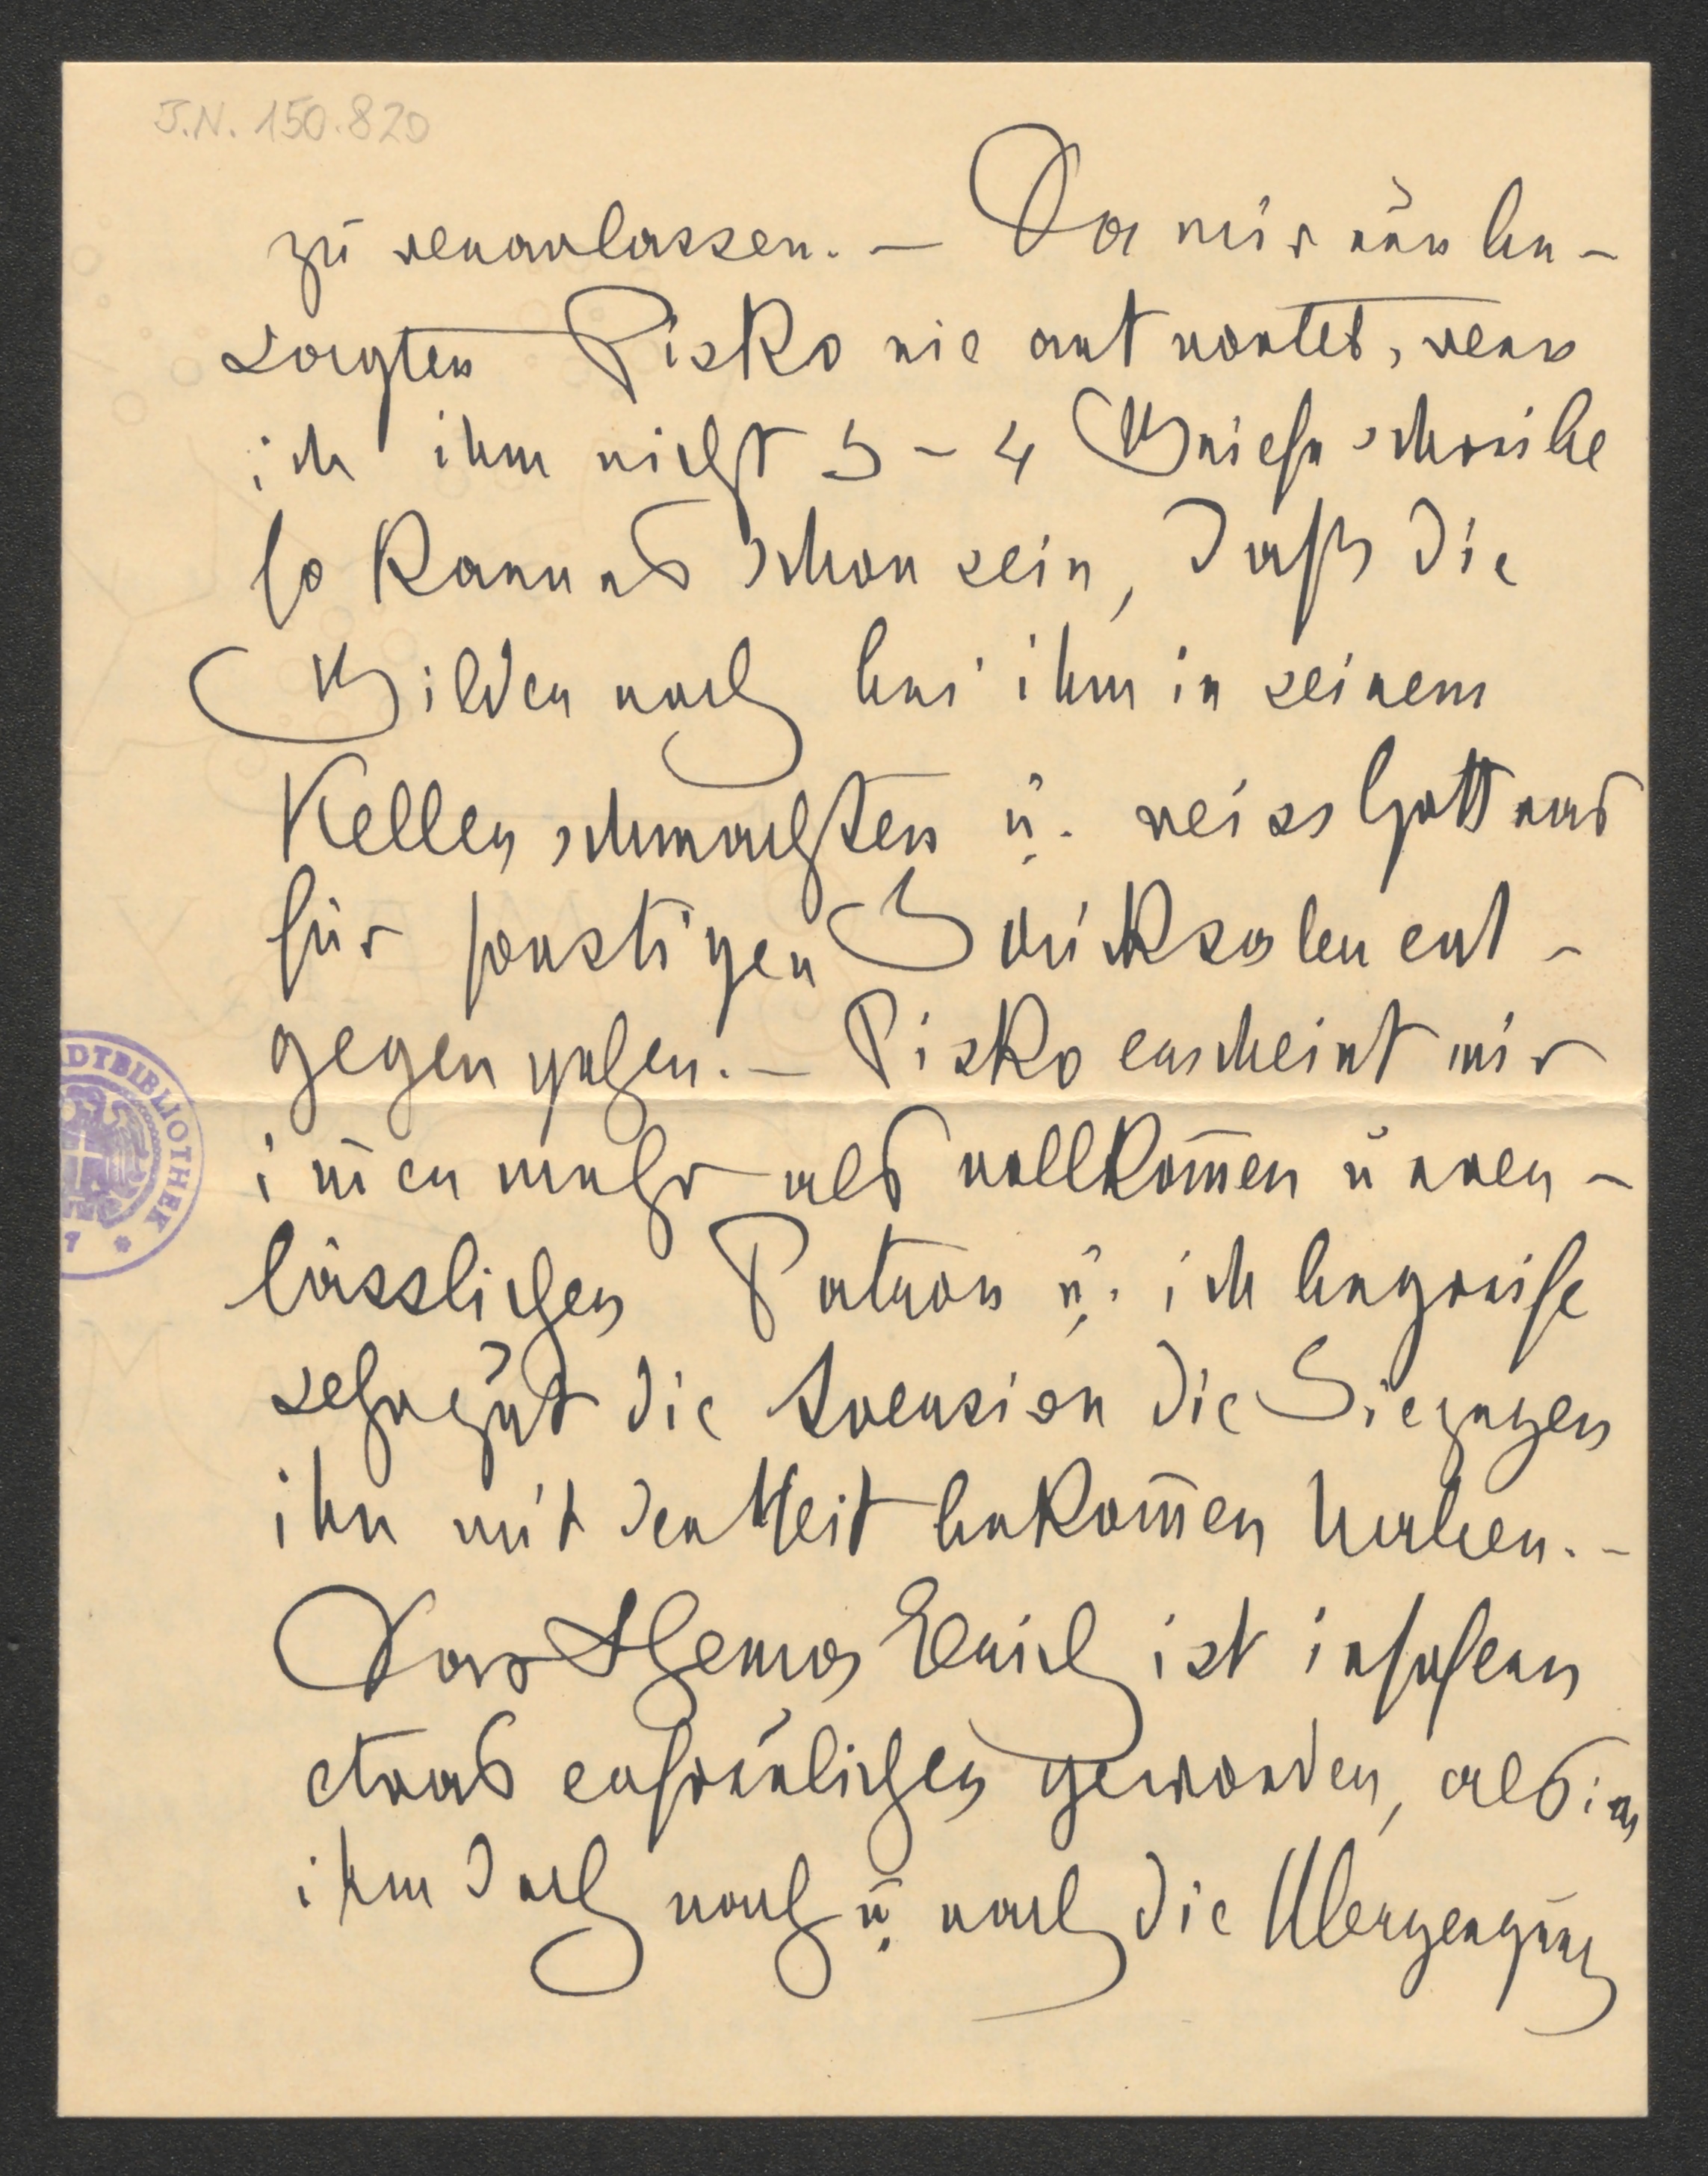 J.N. 150.820
zu veranlassen. – Da mir nun be-
sagter Pisko nie antwortet, wenn
ich ihm nicht 3–4 Briefe schreibe
so kann es schon sein, daß die
Bilder noch bei ihm in seinem
Keller schmachten u. weiss Gott was
für sonstigen Drücksalen ent-
gegen gehen. – Pisko erscheint mir
im̄er mehr als vollkom̄en unver-
lässlicher Patron u. ich begreife
sehr gut die Aversion die Sie gegen
ihn mit der Zeit bekom̄en haben. –
Das Thema Erich ist insofern
etwas erfreulicher geworden, als in
ihm doch nach u. nach die Uberzeugung
STADTBIBLIOTHEK